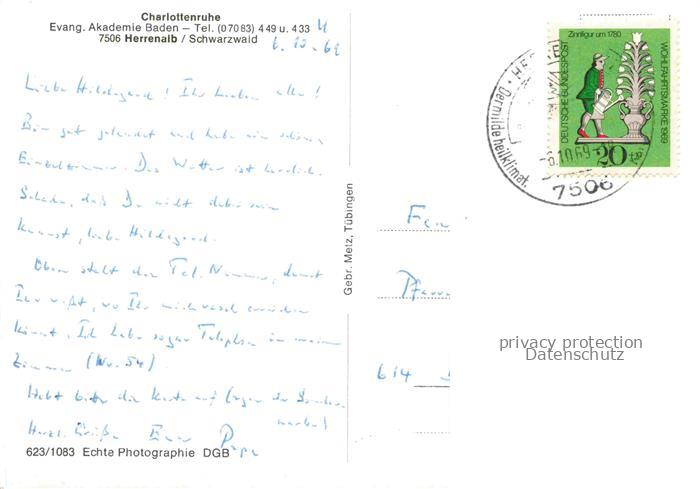 Charlottenruhe
Evang. Akademie Baden – Tel. (07083) 449 u. 433
7506 Herrenalb / Schwarzwald
6.10.69
Liebe Hildegard! Ihr Lieben alle!
Bin gut gelandet und habe ein schönes
Einbettzimmer. Das Wetter ist herrlich.
Schade, daß Du nicht dabei sein
kannst, liebe Hildegard.
Oben steht die Tel. Nummer, damit
Ihr wißt, wo Ihr mich rasch erreichen
könnt. Ich habe sogar Telephon im meinem
Zimmer (Nr. 54)
Hebt bitte die Karte auf (wegen der Sonder-
marke)
Herzl. Grüße Euer Papa
623/1083 Echte Photographie DGB
Gebr. Metz, Tübingen
Zinnfigur um 1780
DEUTSCHE BUNDESPOST
WOHLFAHRTSMARKE 1969
20
Der milde heilklimat.
10.69
7506
614
privacy protection
Datenschutz